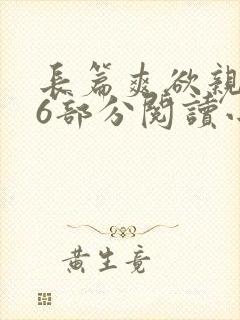 長篇爽欲親
6部分閱讀
黃生竟